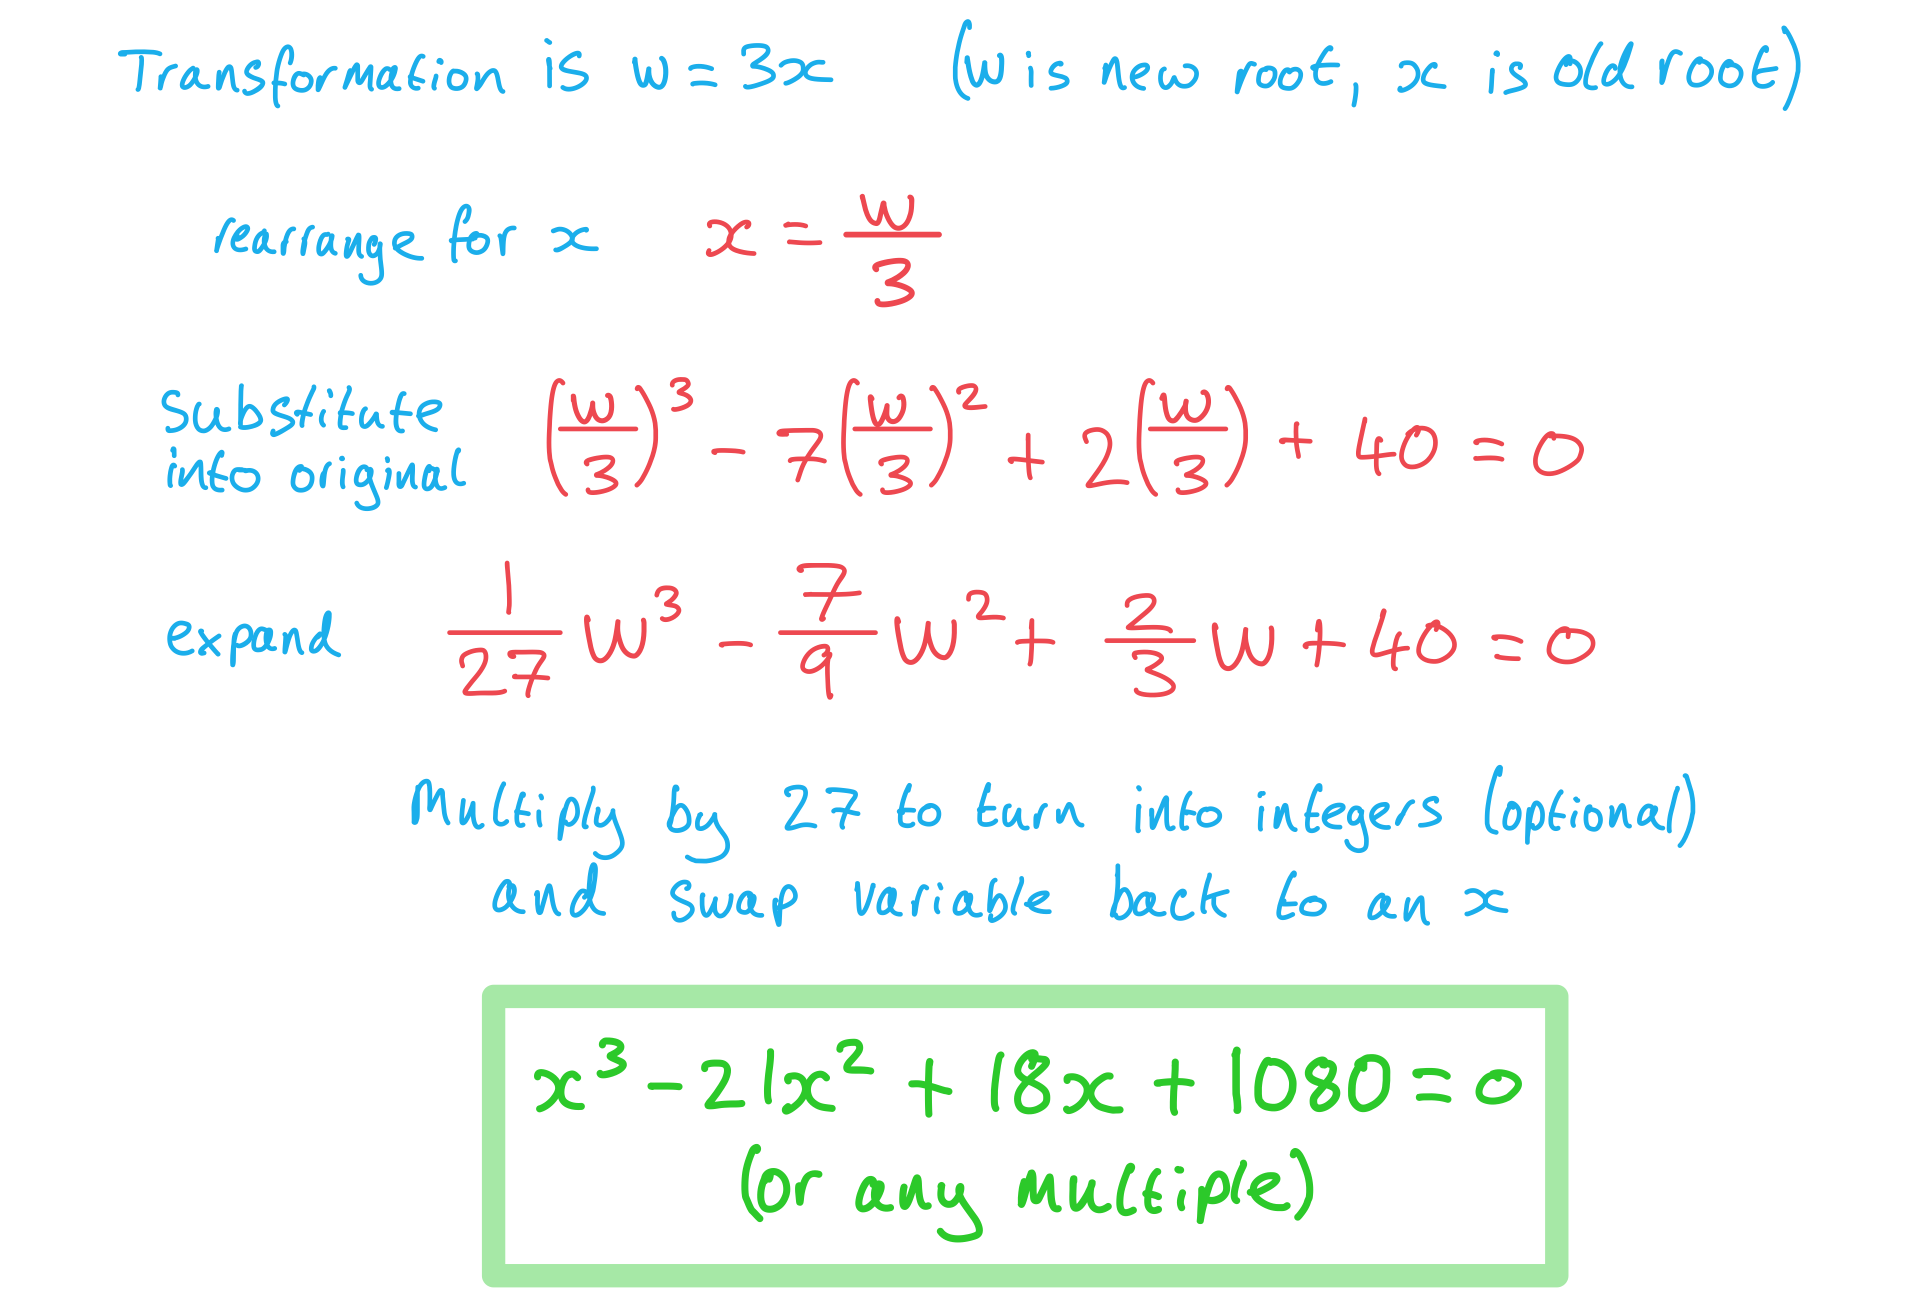 Transformation is w = 3x (w is new root, x is old root)
rearrange for x x = w/3
Substitute into original (w/3)³ - 7(w/3)² + 2(w/3) + 40 = 0
expand 1/27 w³ - 7/9 w² + 2/3 w + 40 = 0
Multiply by 27 to turn into integers (optional)
and swap variable back to an x
x³ - 21x² + 18x + 1080 = 0
(or any multiple)